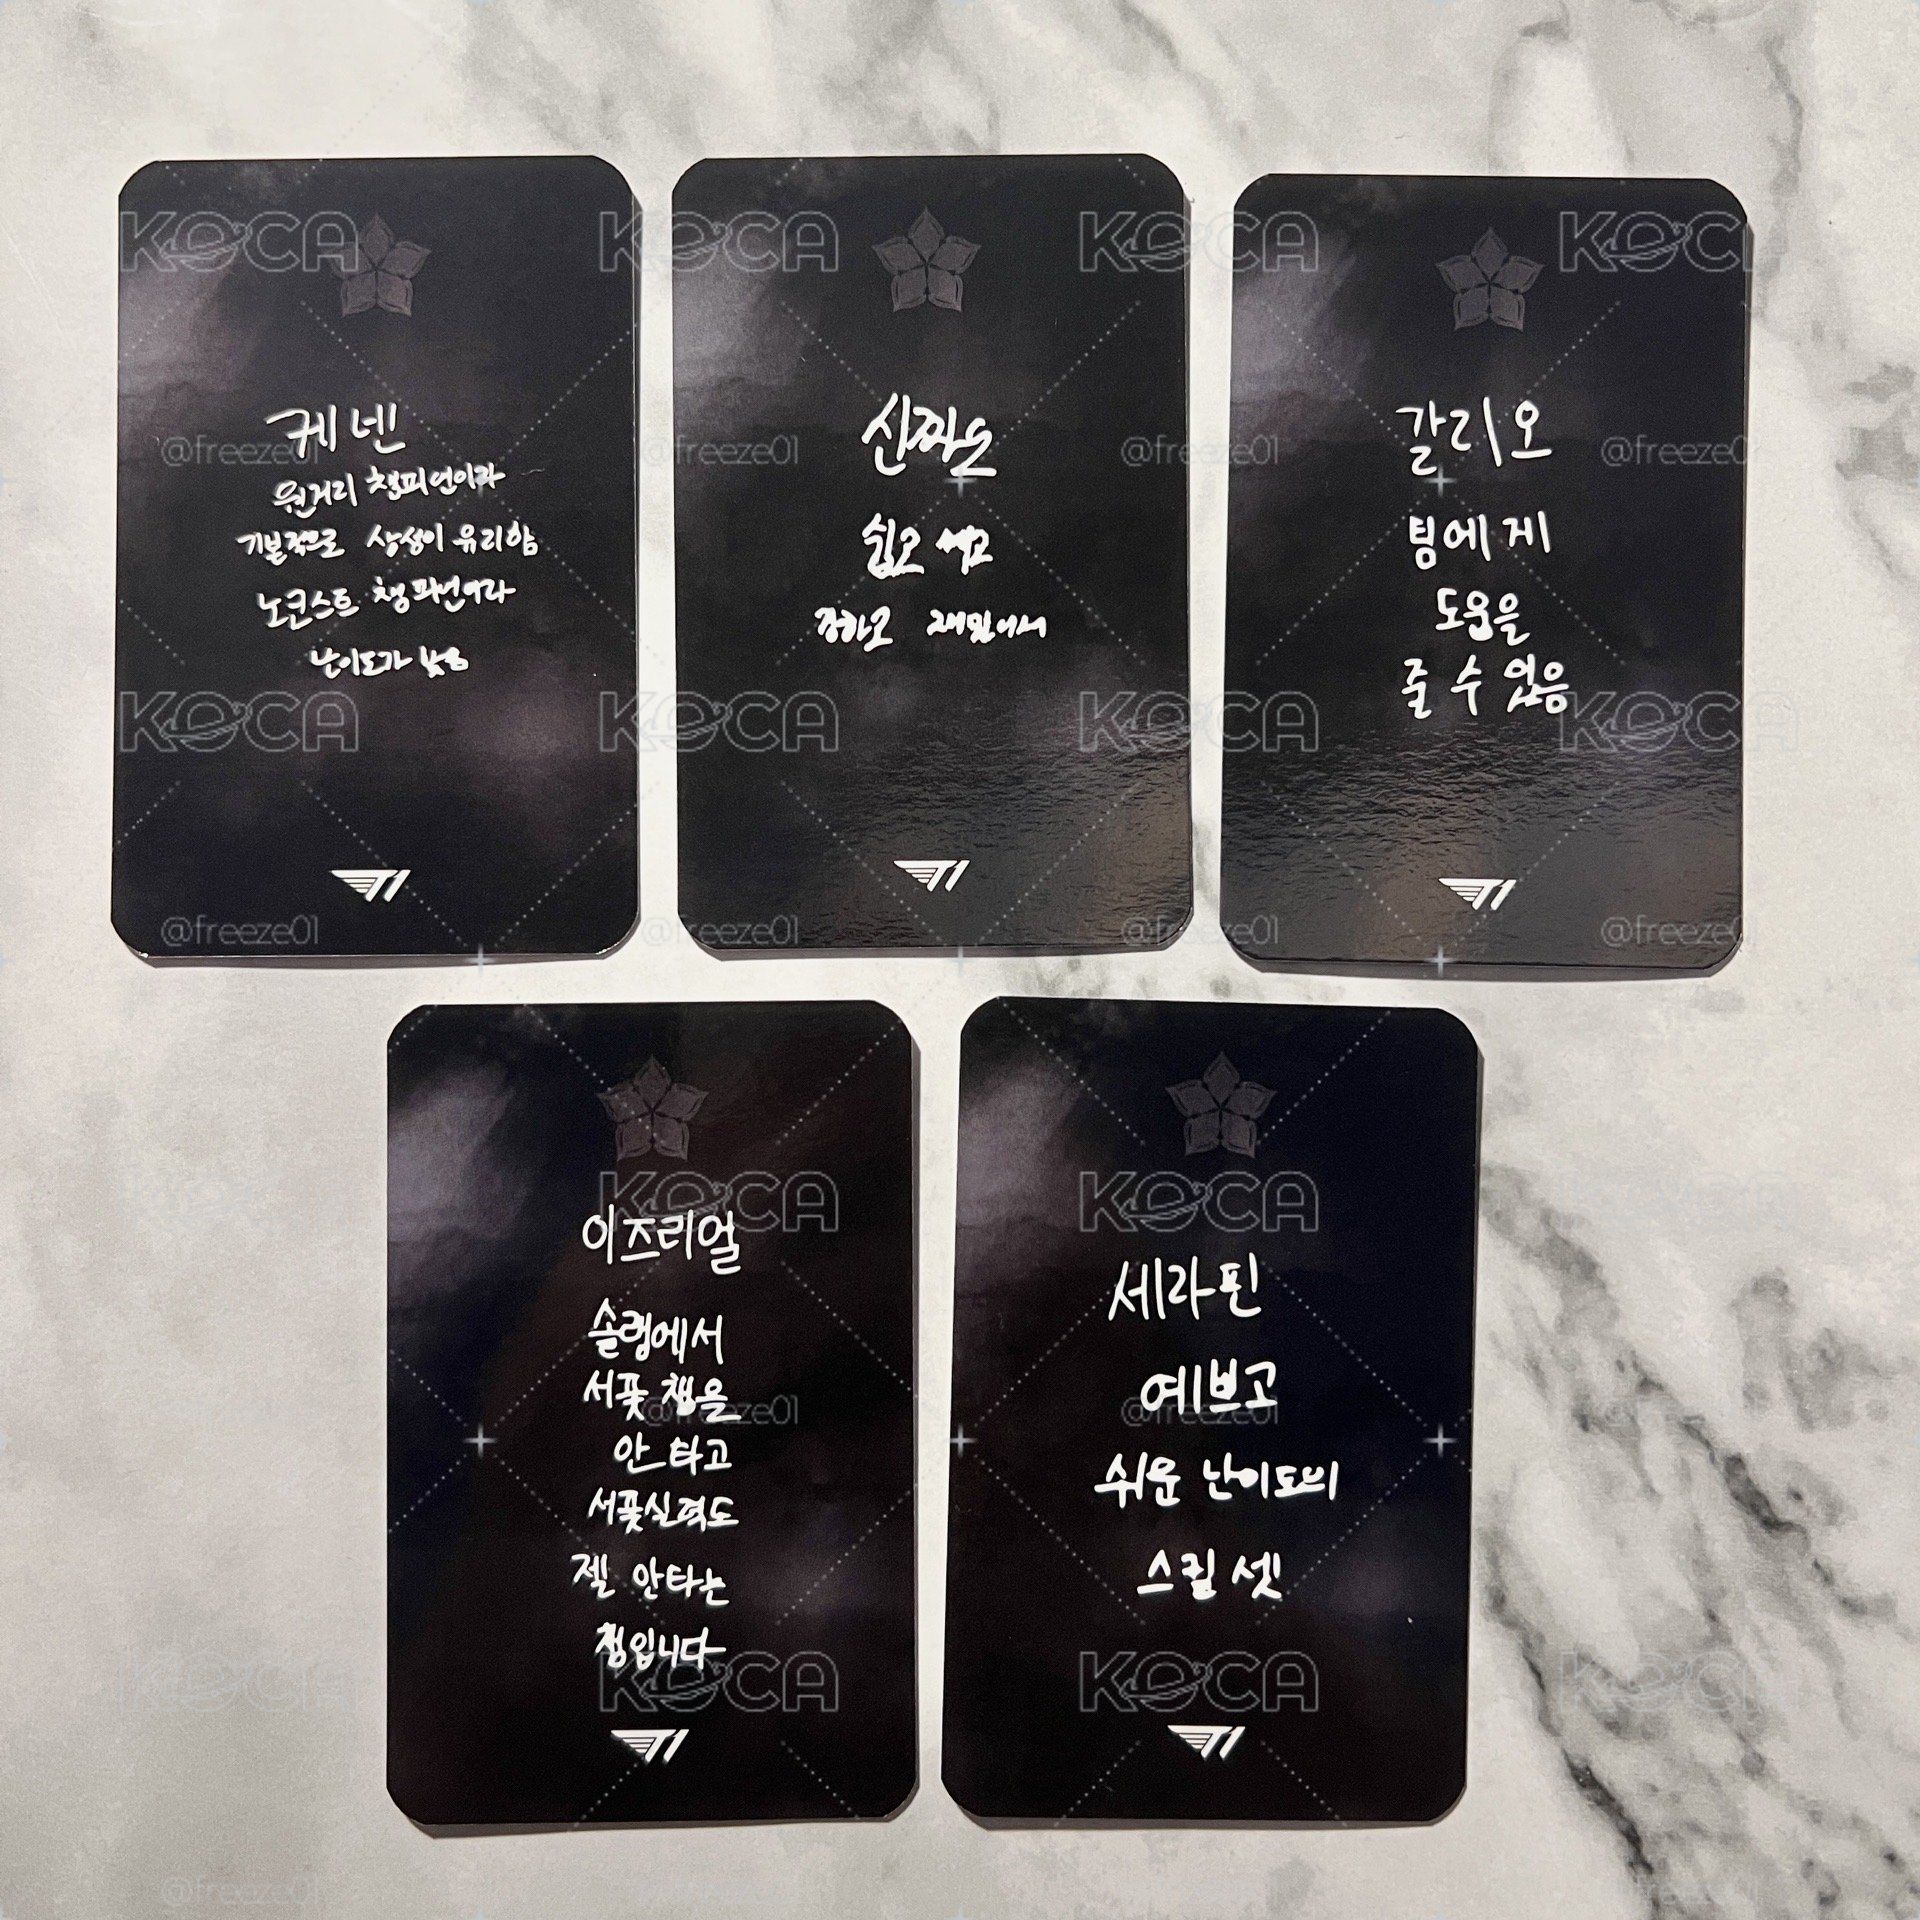 케넨
원거리 챔피언이라
기본적으로 상성이 유리함
노코스트 챔피언이라
난이도가 낮음
T1
신짜오
쉽고 세고
강하고 재밌어서
T1
갈리오
팀에게
도움을
줄 수 있음
T1
이즈리얼
솔랭에서
서폿 챔을
안 타고
서폿실력도
젤 안타는
챔입니다
T1
세라핀
예쁘고
쉬운 난이도의
스킬 셋
T1
KOCA
@freeze01